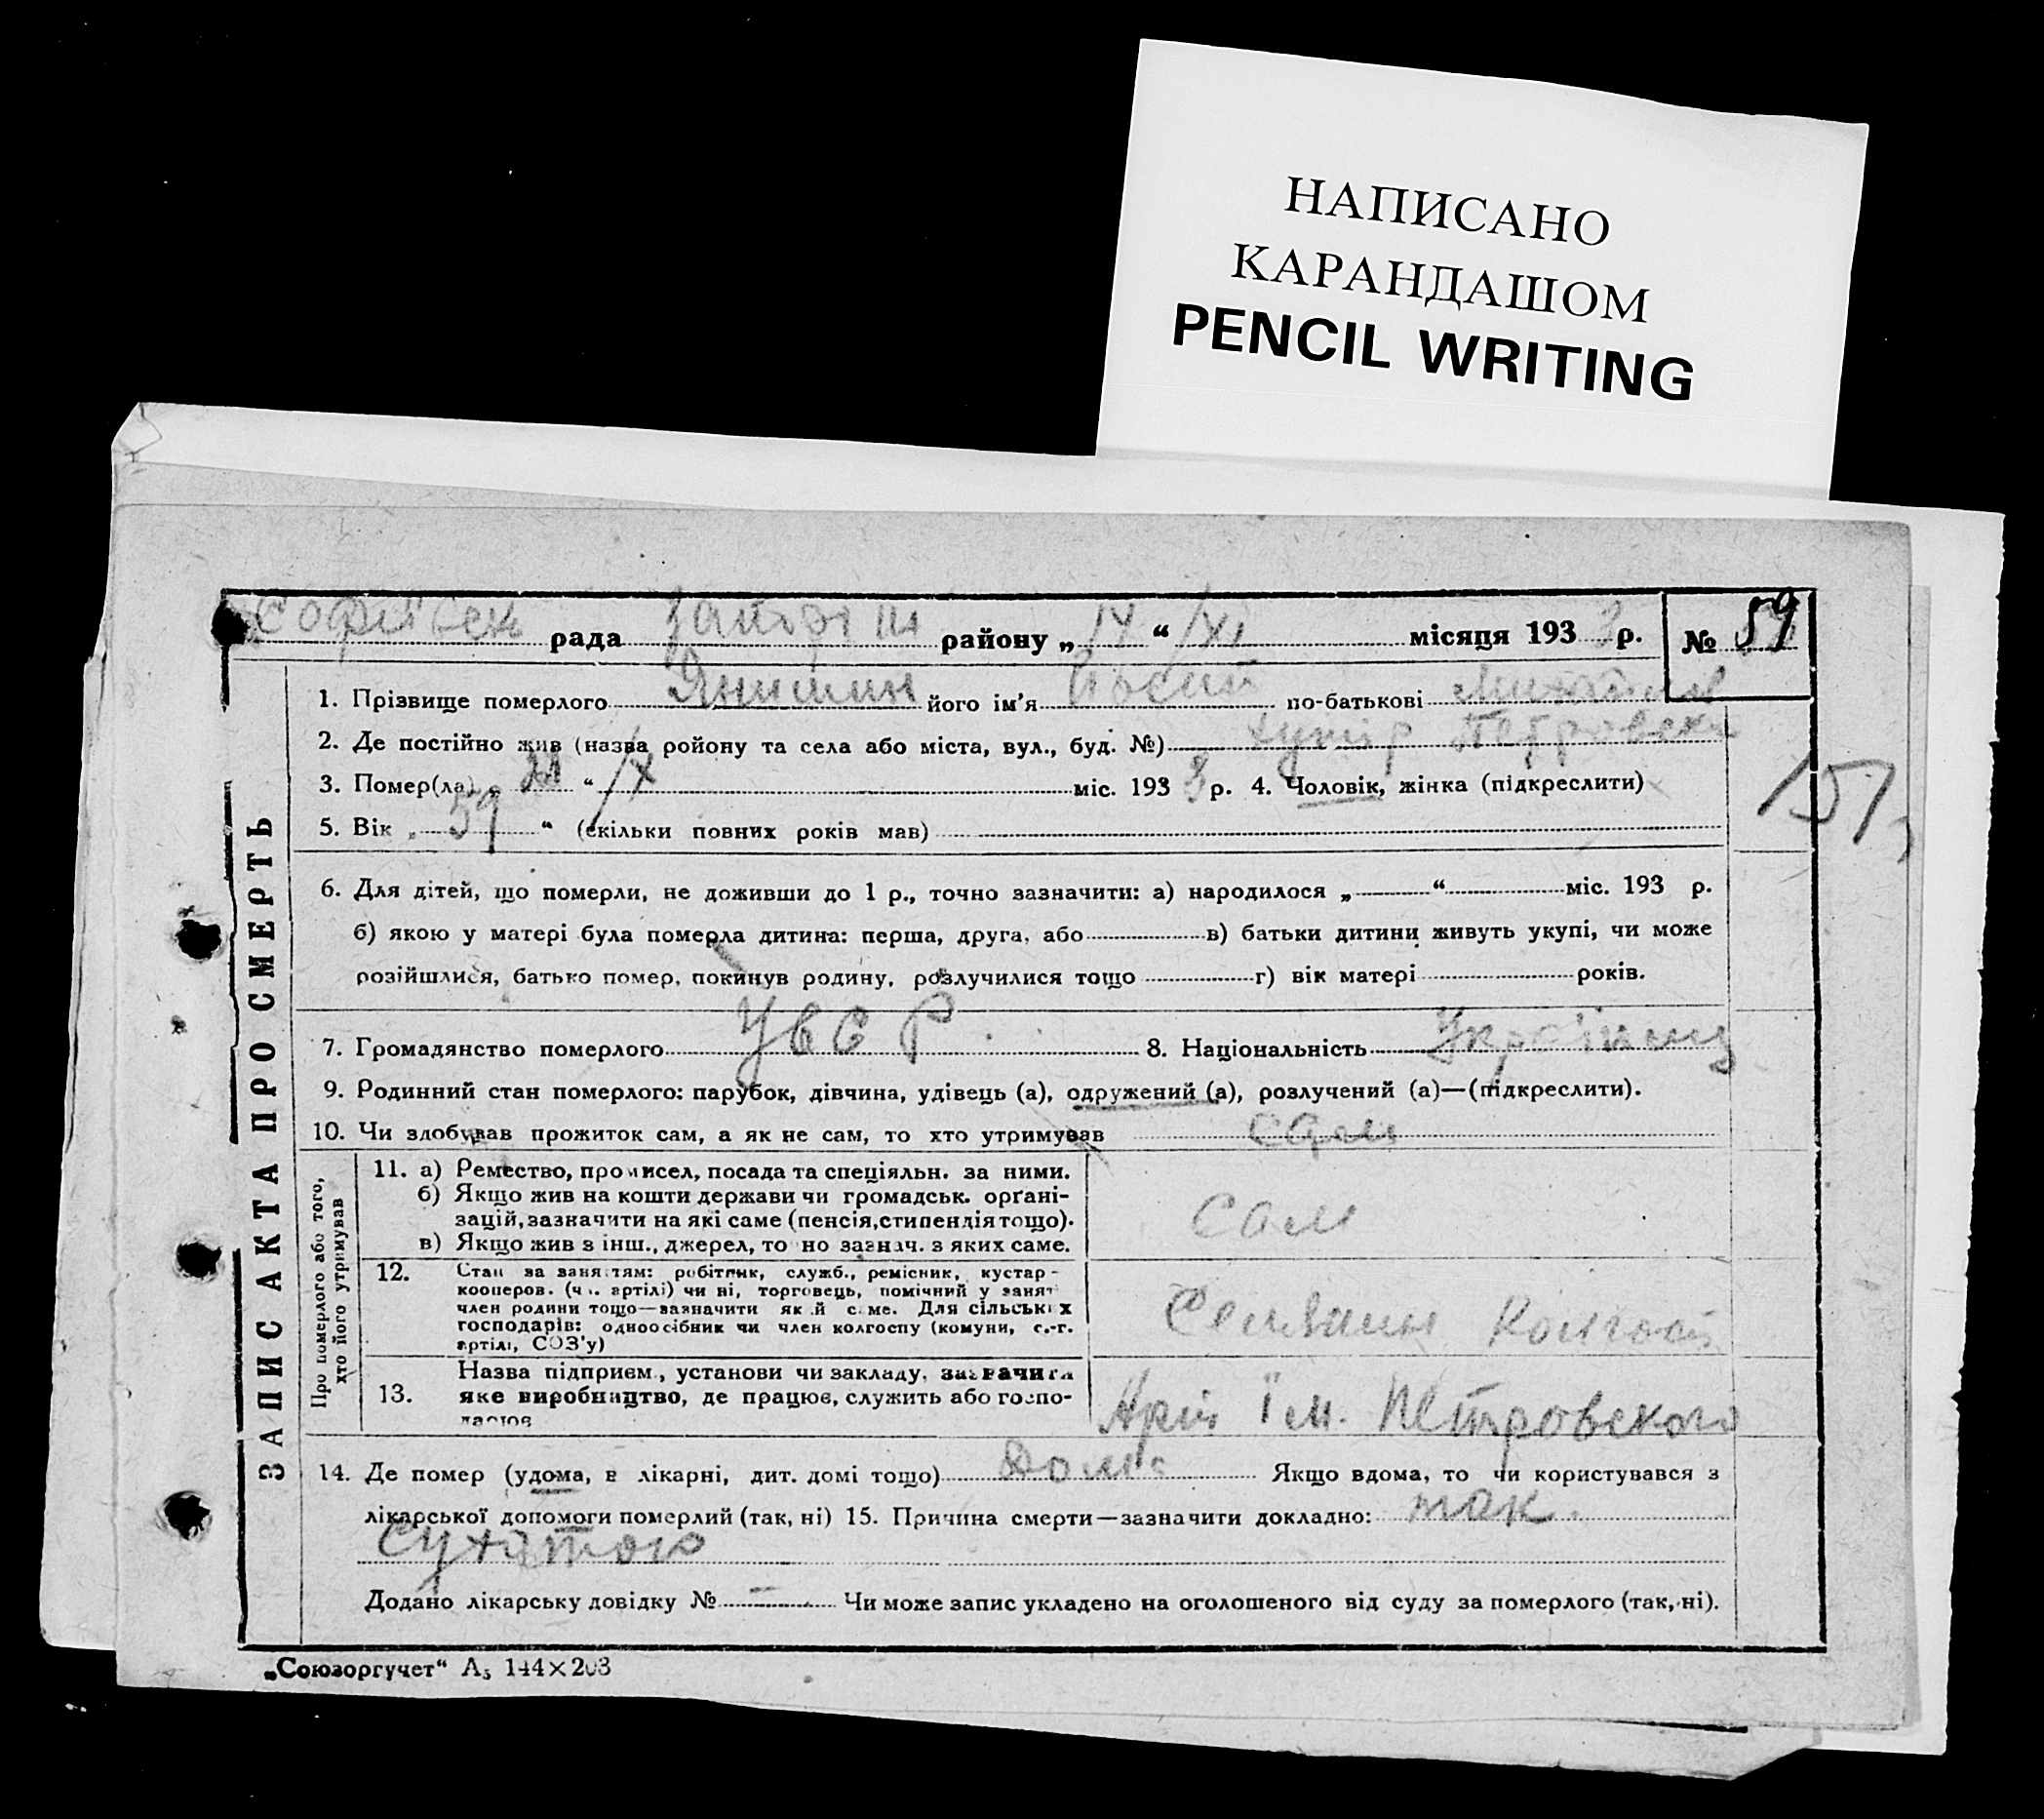 НАПИСАНО
КАРАНДАШОМ
PENCIL WRITING
рада району „ 14 “ XI місяця 193 3 р. № 59
1. Прізвище померлого його ім'я по-батькові
2. Де постійно жив (назва ройону та села або міста, вул., буд. №) хутір Петровськ
3. Помер(ла) „ “ X міс. 193 3 р. 4. Чоловік, жінка (підкреслити)
5. Вік „ 59 “ (скільки повних років мав)
151
6. Для дітей, що померли, не доживши до 1 р., точно зазначити: а) народилося „ “ міс. 193 р.
б) якою у матері була померла дитина: перша, друга, або в) батьки дитини живуть укупі, чи може
розійшлися, батько помер, покинув родину, розлучилися тощо г) вік матері років.
7. Громадянство померлого УССР 8. Національність Українец
9. Родинний стан померлого: парубок, дівчина, удівець (а), одружений (а), розлучений (а)—(підкреслити).
10. Чи здобував прожиток сам, а як не сам, то хто утримував сам
ЗАПИС АКТА ПРО СМЕРТЬ
Про померлого або того,
хто його утримував
11. а) Ремество, промисел, посада та спеціяльн. за ними.
б) Якщо жив на кошти держави чи громадськ. орґані-
зацій, зазначити на які саме (пенсія, стипендія тощо).
в) Якщо жив з інш., джерел, то но зазнач. з яких саме.
сам
12. Стан за заняттям: робітник, служб., ремісник, кустар-
кооперов. (чл. артілі) чи ні, торговець, помічний у занят
член родини тощо—зазначити який саме. Для сільських
господарів: одноосібник чи член колгоспу (комуни, с.-г.
артілі, СОЗ'у)
Селянин
13. Назва підприєм., установи чи закладу, зазначити
яке виробництво, де працює, служить або госпо-
дарює
ім. Петровского
14. Де помер (удома, в лікарні, дит. домі тощо) Дома Якщо вдома, то чи користувався з
лікарської допомоги померлий (так, ні) 15. Причина смерти—зазначити докладно: так.
Сухатою
Додано лікарську довідку № — Чи може запис укладено на оголошеного від суду за померлого (так, ні).
„Союзоргучет“ А₅ 144×203